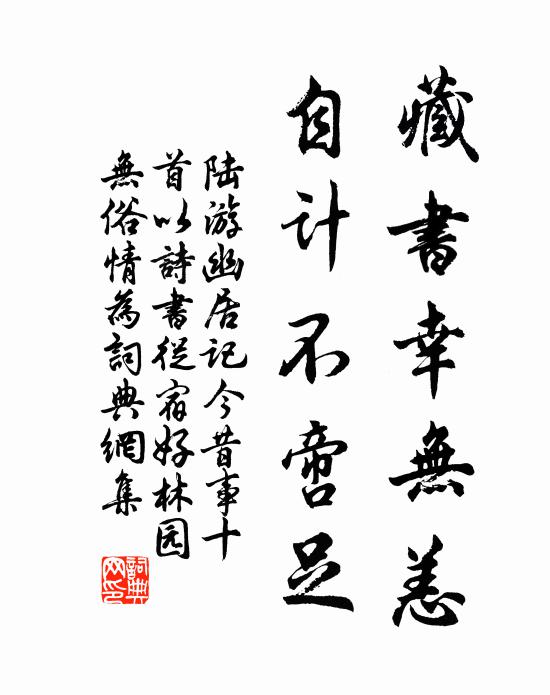 藏書幸無恙
自計不啻足
陆游幽居記今昔事十
首以詩書從宿好林园
無俗情為詞典網集
詞典
网印